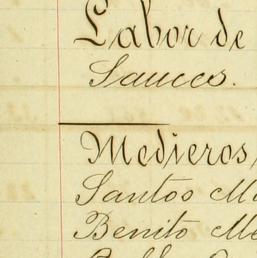 Labor de
Sauces.
Medieros,
Santos
Benito